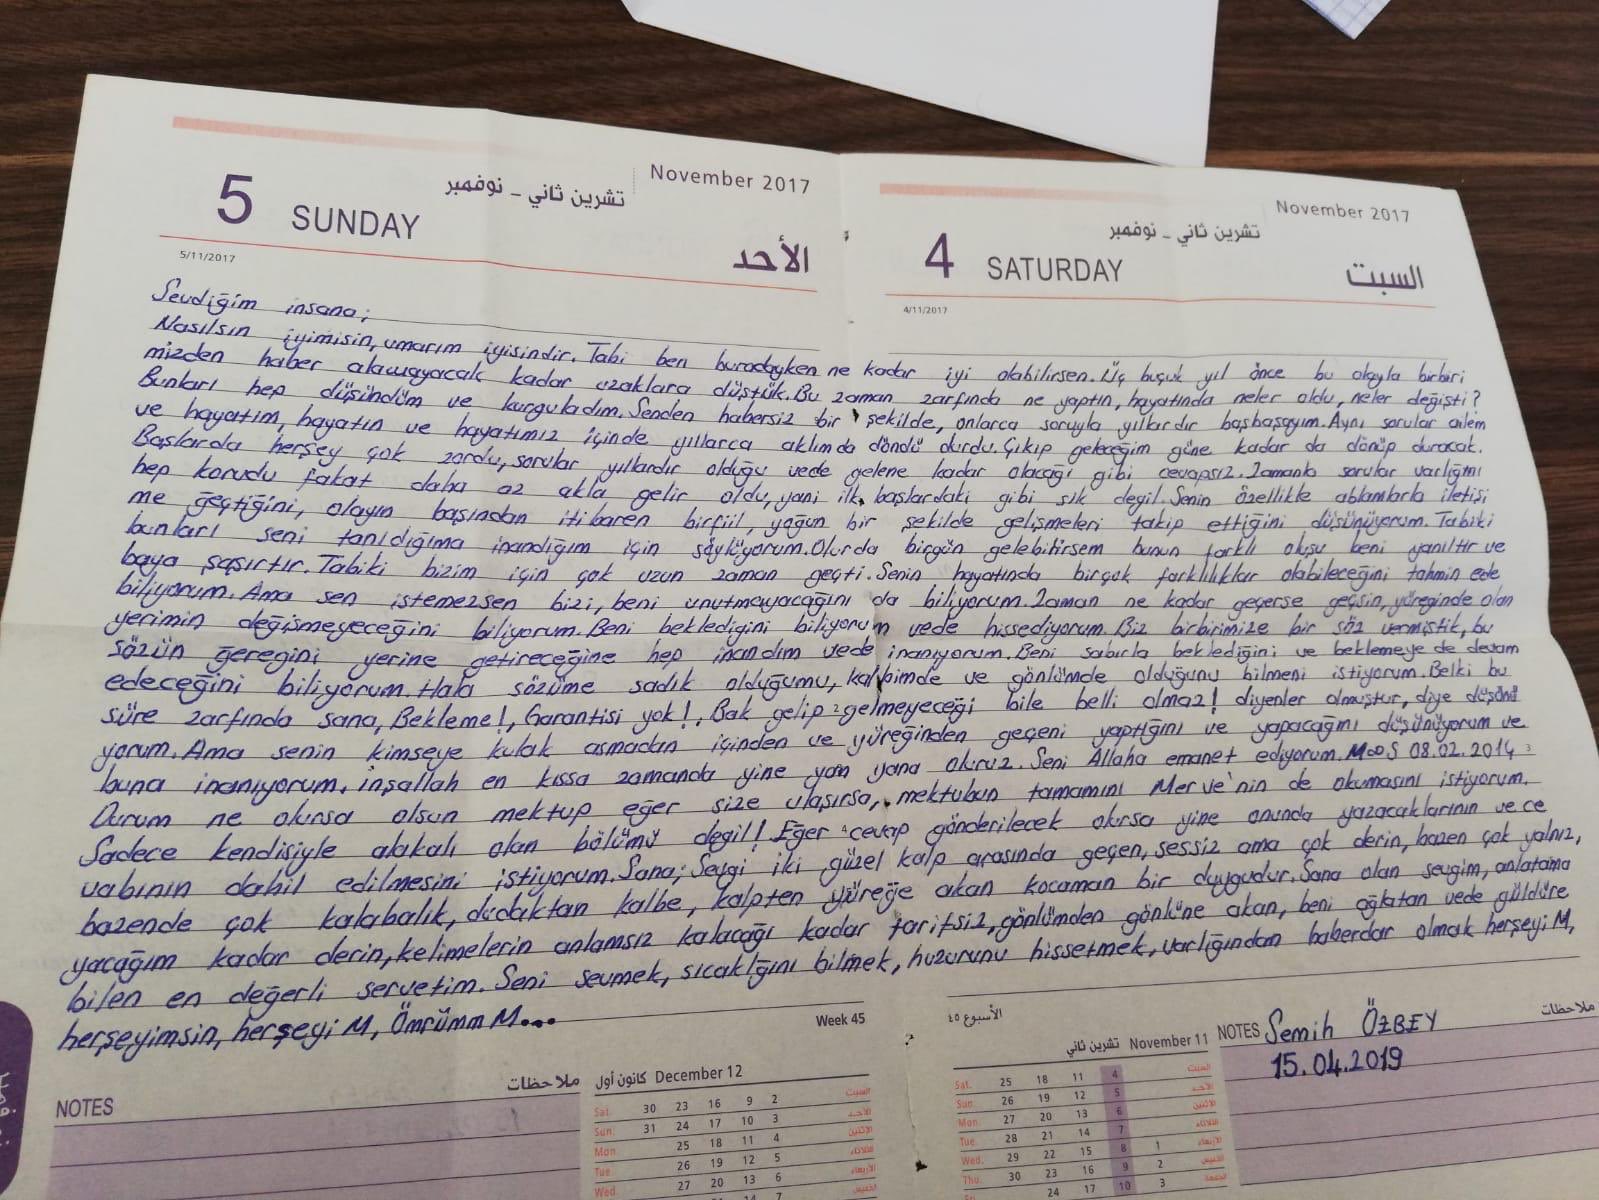 5 SUNDAY
تشرين ثاني - نوفمبر
November 2017
الأحد
5/11/2017
4 SATURDAY
تشرين ثاني - نوفمبر
November 2017
السبت
4/11/2017
Sevdiğim insana;
Nasılsın iyimisin, umarım iyisindir. Tabi ben buradayken ne kadar iyi olabilirsen. Üç buçuk yıl önce bu olayla birbiri
mizden haber alamayacak kadar uzaklara düştük. Bu zaman zarfında ne yaptın, hayatında neler oldu, neler değişti?
Bunları hep düşündüm ve kurguladım. Senden habersiz bir şekilde, onlarca soruyla yıllardır başbaşayım. Aynı sorular ailem
ve hayatım, hayatın ve hayatımız içinde yıllarca aklımda döndü durdu. Çıkıp geleceğim güne kadar da dönüp duracak.
Başlarda herşey çok zordu, sorular yıllardır olduğu vede gelene kadar olacağı gibi cevapsız. Zamanla sorular varlığını
hep korudu fakat daha az akla gelir oldu, yani ilk başlardaki gibi sık değil. Senin özellikle ablamlarla iletişi
me geçtiğini, olayın başından itibaren birfiil, yoğun bir şekilde gelişmeleri takip ettiğini düşünüyorum. Tabiki
bunları seni tanıdığıma inandığım için söylüyorum. Olurda birgün gelebilirsem bunun farklı oluşu beni yanıltır ve
baya şaşırtır. Tabiki bizim için çok uzun zaman geçti. Senin hayatında birçok farklılıklar olabileceğini tahmin ede
biliyorum. Ama sen istemezsen bizi, beni unutmayacağını da biliyorum. Zaman ne kadar geçerse geçsin, yüreğinde olan
yerimin değişmeyeceğini biliyorum. Beni beklediğini biliyorum vede hissediyorum. Biz birbirimize bir söz vermiştik, bu
sözün gereğini yerine getireceğine hep inandım vede inanıyorum. Beni sabırla beklediğini ve beklemeye de devam
edeceğini biliyorum. Hala sözüme sadık olduğumu, kalbimde ve gönlümde olduğunu bilmeni istiyorum. Belki bu
süre zarfında sana, Bekleme!, Garantisi yok!, Bak gelip gelmeyeceği bile belli olmaz! diyenler olmuştur, diye düşünü
yorum. Ama senin kimseye kulak asmadan içinden ve yüreğinden geçeni yaptığını ve yapacağını düşünüyorum ve
buna inanıyorum. inşallah en kıssa zamanda yine yan yana oluruz. Seni Allaha emanet ediyorum. M∞S 08.02.2014
Durum ne olursa olsun mektup eğer size ulaşırsa, mektubun tamamını Merve'nin de okumasını istiyorum.
Sadece kendisiyle alakalı olan bölümü değil! Eğer cevap gönderilecek olursa yine onunda yazacaklarının ve ce
vabının dahil edilmesini istiyorum. Sana; Sevgi iki güzel kalp arasında geçen, sessiz ama çok derin, bazen çok yalnız,
bazende çok kalabalık, dudaktan kalbe, kalpten yüreğe akan kocaman bir duygudur. Sana olan sevgim, anlatama
yacağım kadar derin, kelimelerin anlamsız kalacağı kadar tarifsiz, gönlümden gönlüne akan, beni ağlatan vede güldüre
bilen en değerli servetim. Seni sevmek, sıcaklğını bilmek, huzurunu hissetmek, varlığından haberdar olmak herşeyi M,
herşeyimsin, herşeyi M, ÖmrümM...
Week 45
الأسبوع ٤٥
NOTES
ملاحظات
كانون أول December 12
Sat. 30 23 16 9 2 السبت
Sun. 31 24 17 10 3 الأحد
Mon. 25 18 11 4 الاثنين
Tue. 26 19 12 5 الثلاثاء
Wed. 27 20 13 6 الأربعاء
14 7 الخميس
تشرين ثاني November 11
Sat. 25 18 11 4 السبت
Sun. 26 19 12 5 الأحد
Mon. 27 20 13 6 الاثنين
Tue. 28 21 14 7 الثلاثاء
Wed. 29 22 15 8 1 الأربعاء
Thu. 30 23 16 9 2 الخميس
24 17 10 3 الجمعة
NOTES
ملاحظات
Semih ÖZBEY
15.04.2019